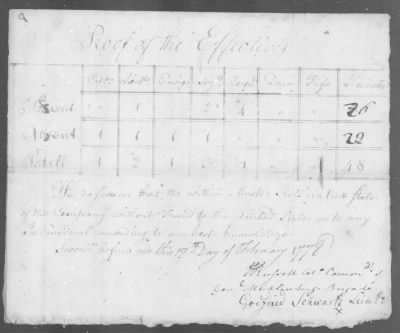 Proof of the Effectives
Capt Lieuts Ensign Serjts Corpl Drum Fife Privates
Present " 1 " 2 4 " " 26
Absent 1 1 1 1 " " " 22
Totall 1 2 1 3 4 " " 48
We do swear that the within Muster Roll is a true State
of the Company without Fraud to the United States or to any
Individual according to our best knowledge
Sworn before me this 17th Day of February 1778
Wm Russell Colo Commdt
Genl Muhlenbergs Brigade
Godfried Schwartz Lieut